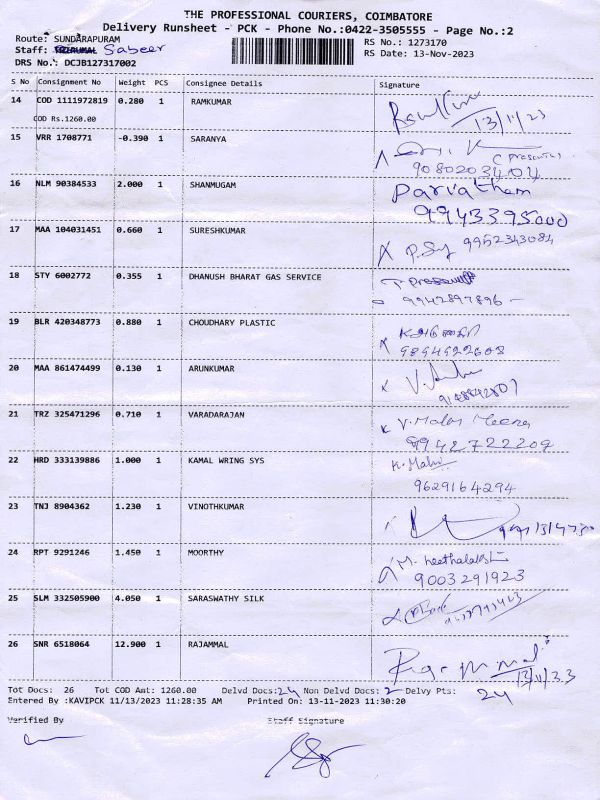 THE PROFESSIONAL COURIERS, COIMBATORE
Delivery Runsheet - PCK - Phone No.:0422-3505555 - Page No.:2
Route: SUNDARAPURAM
RS No.: 1273170
Staff: Sabeer
RS Date: 13-Nov-2023
DRS No.: DCJB127317002
S No Consignment No Weight PCS Consignee Details Signature
14 COD 1111972819 0.280 1 RAMKUMAR
13/11/23
COD Rs.1260.00
15 VRR 1708771 -0.390 1 SARANYA
9080203404
16 NLM 90384533 2.000 1 SHANMUGAM Parvatham
9943395000
17 MAA 104031451 0.660 1 SURESHKUMAR 9952343084
18 STY 6002772 0.355 1 DHANUSH BHARAT GAS SERVICE
9942897896
19 BLR 420348773 0.880 1 CHOUDHARY PLASTIC
9894922608
20 MAA 861474499 0.130 1 ARUNKUMAR
21 TRZ 325471296 0.710 1 VARADARAJAN V. Malar Meena
9942722209
22 HRD 333139886 1.000 1 KAMAL WRING SYS K. Malar
9629164294
23 TNJ 8904362 1.230 1 VINOTHKUMAR
24 RPT 9291246 1.450 1 MOORTHY
9003291923
25 SLM 332505900 4.050 1 SARASWATHY SILK
26 SNR 6518064 12.900 1 RAJAMMAL
13/11/23
Tot Docs: 26 Tot COD Amt: 1260.00 Delvd Docs: 24 Non Delvd Docs: 2 Delvy Pts: 24
Entered By :KAVIPCK 11/13/2023 11:28:35 AM Printed On: 13-11-2023 11:30:20
Verified By Staff Signature